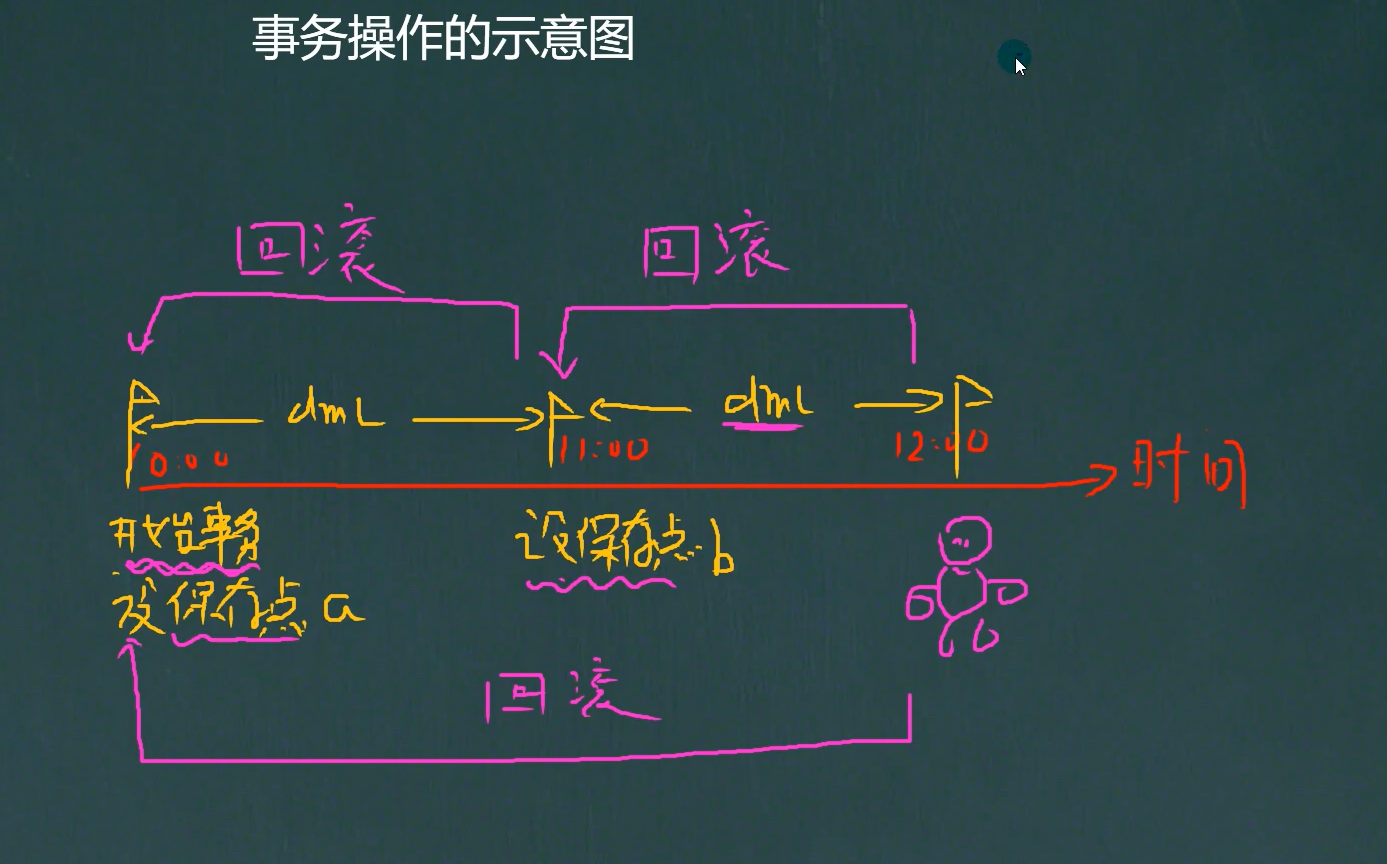 事务操作的示意图
回滚
回滚
dml
dml
10:00
11:00
12:00
时间
开始事务
设保存点 a
设保存点 b
回滚